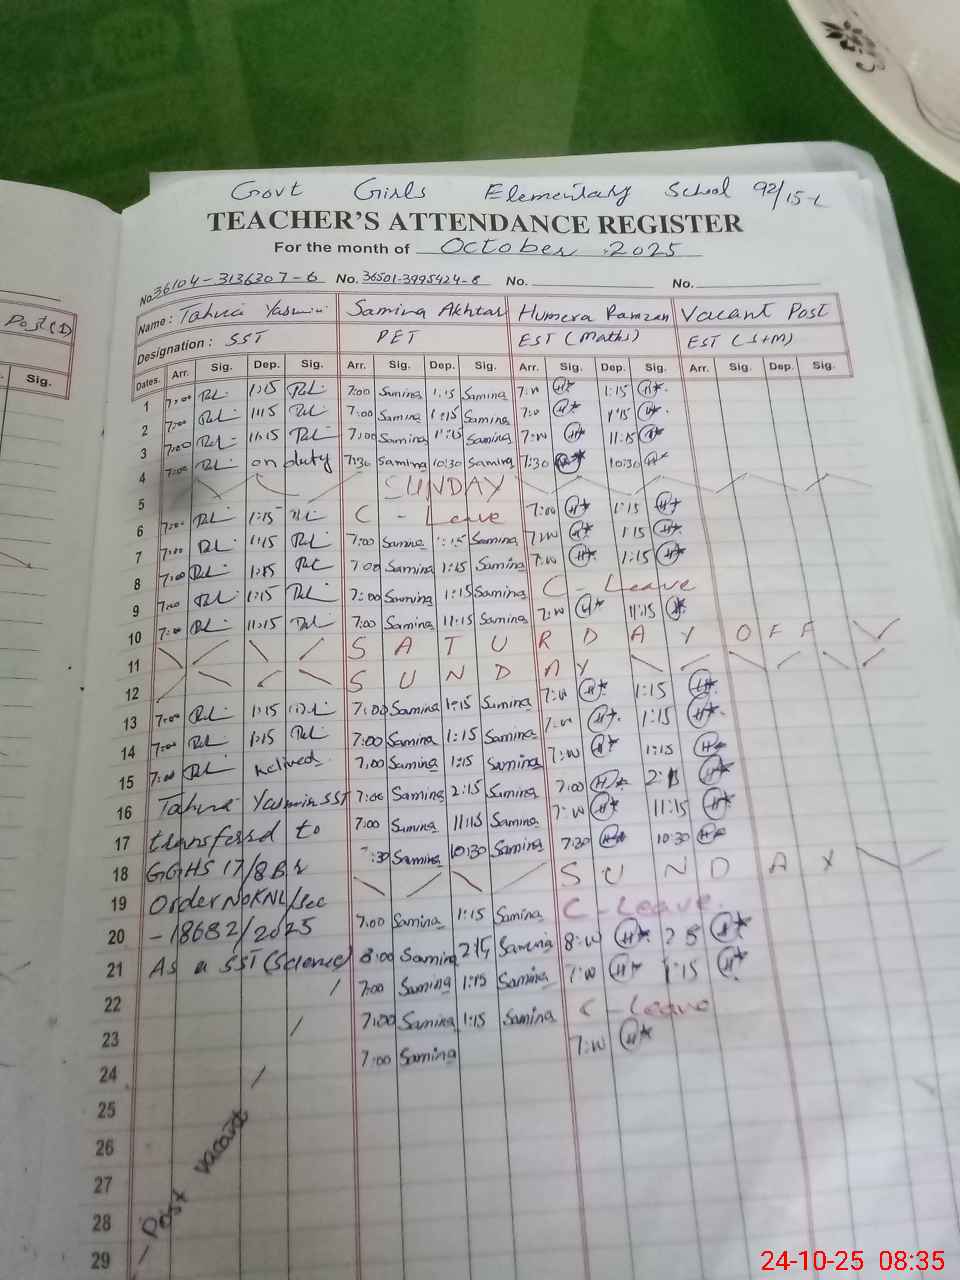 Govt Girls Elementary School 92/15-L
TEACHER'S ATTENDANCE REGISTER
For the month of October 2025
No. 36104-3136307-6 No. 36501-3995424-8 No. No.
Post (1)
Name: Tahira Yasmin Samina Akhtar Humera Ramzan Vacant Post
Designation: SST PET EST (Maths) EST (S+M)
Sig.
Dates. Arr. Sig. Dep. Sig. Arr. Sig. Dep. Sig. Arr. Sig. Dep. Sig. Arr. Sig. Dep. Sig.
1 7:00 1:15 7:00 Samina 1:15 Samina 7:00 1:15
2 7:00 1:15 7:00 Samina 1:15 Samina 7:00 1:15
3 7:00 11:15 7:00 Samina 11:15 Samina 7:00 11:15
4 7:00 on duty 7:30 Samina 10:30 Samina 7:30 10:30
5 SUNDAY
6 7:00 1:15 C - Leave 7:00 1:15
7 7:00 1:15 7:00 Samina 1:15 Samina 7:00 1:15
8 7:00 1:15 7:00 Samina 1:15 Samina 7:00 1:15
9 7:00 1:15 7:00 Samina 1:15 Samina C - Leave
10 7:00 11:15 7:00 Samina 11:15 Samina 7:00 11:15
11 SATURDAY OFF
12 SUNDAY
13 7:00 1:15 7:00 Samina 1:15 Samina 7:00 1:15
14 7:00 1:15 7:00 Samina 1:15 Samina 7:00 1:15
15 7:00 Relived 7:00 Samina 1:15 Samina 7:00 1:15
16 Tahira Yasmin SST 7:00 Samina 2:15 Samina 7:00 2:15
17 transferd to 7:00 Samina 11:15 Samina 7:00 11:15
18 GGHS 17/8BR 7:30 Samina 10:30 Samina 7:30 10:30
19 Order No KNL/Sec SUNDAY
20 -18682/2025 7:00 Samina 1:15 Samina C - Leave
21 As a SST (Science) 8:00 Samina 2:15 Samina 8:00
22 7:00 Samina 1:15 Samina 7:00 1:15
23 7:00 Samina 1:15 Samina C - Leave
24 7:00 Samina 7:00
25
26
27
28
29
Post vacant
24-10-25 08:35